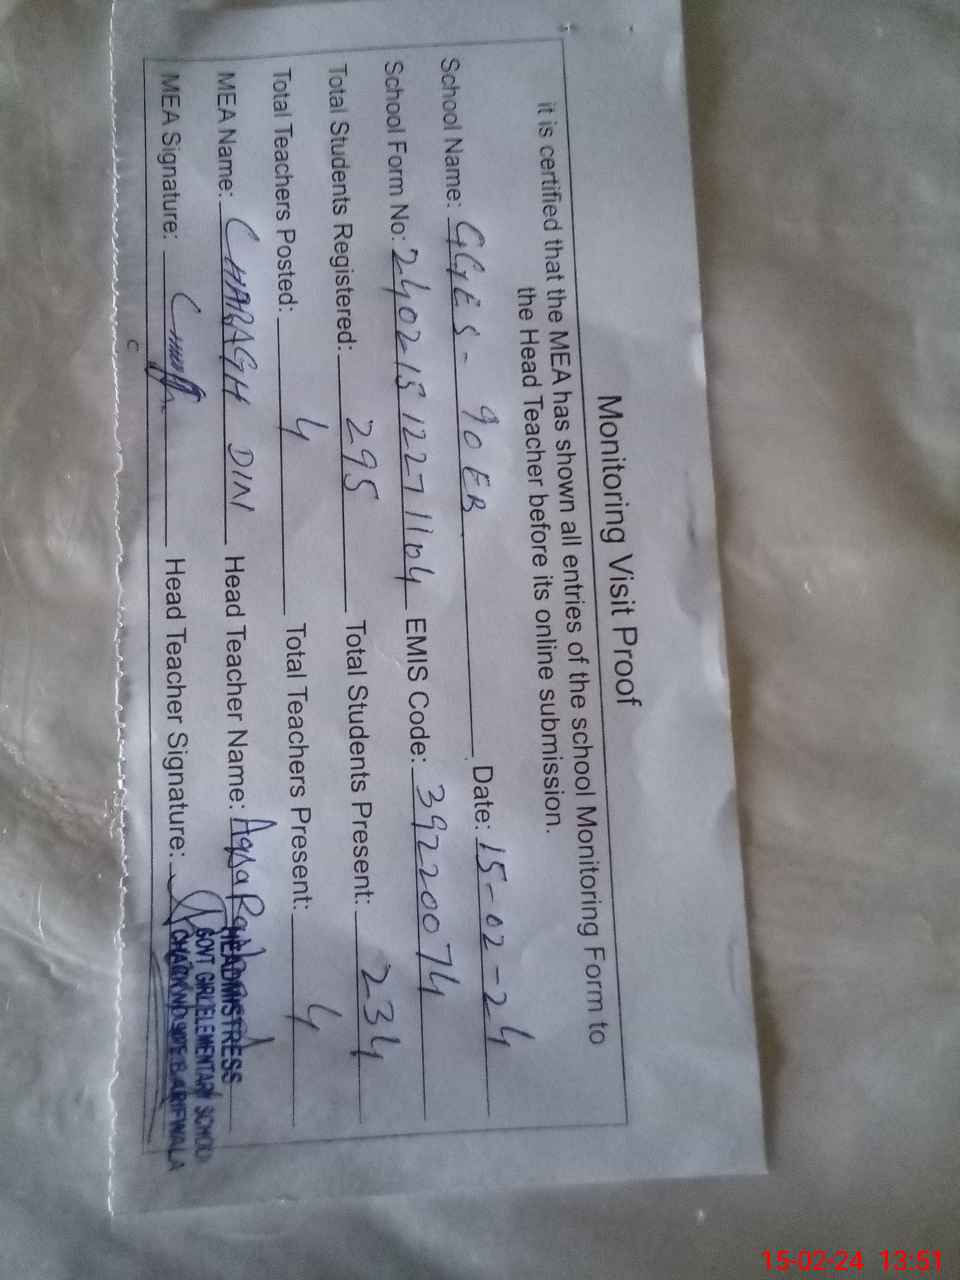 Monitoring Visit Proof
it is certified that the MEA has shown all entries of the school Monitoring Form to
the Head Teacher before its online submission.
School Name: GGES - 90 EB Date: 15-02-24
School Form No: 240215 1227 1104 EMIS Code: 39220074
Total Students Registered: 295 Total Students Present: 234
Total Teachers Posted: 4 Total Teachers Present: 4
MEA Name: CHARAGH DIN Head Teacher Name: Aqsa
MEA Signature: Head Teacher Signature:
HEADMISTRESS
GOVT GIRL ELEMENTARY SCHOOL
CHAK NO ARIFWALA
C
15-02-24 13:51